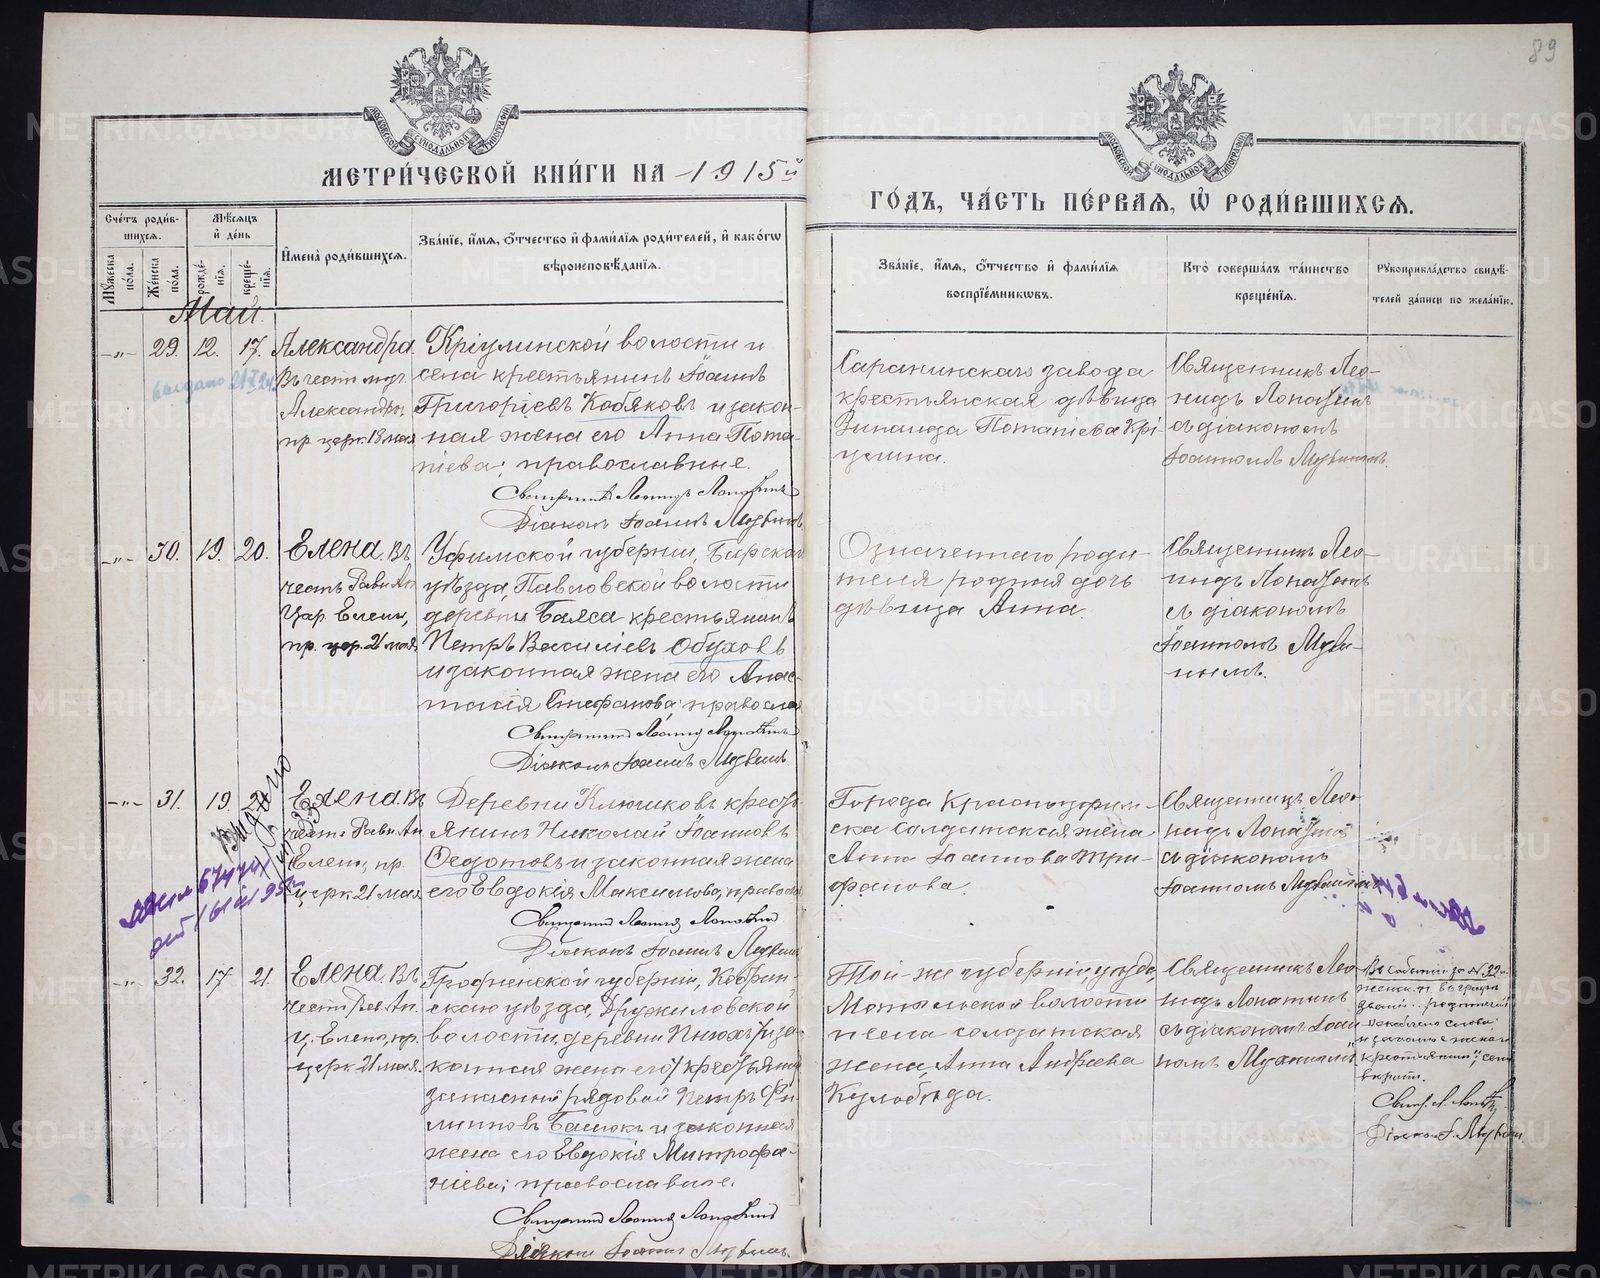 89
МЕТРИ́ЧЕСКОЙ КНИ́ГИ НА 1915й
ГО́ДЪ, ЧА́СТЬ ПЕ́РВАѦ, Ѡ҆ РОДИ́ВШИХСѦ.
Сче́тъ роди́в-
шихсѧ.
Мꙋ́жеска по́ла.
Же́нска по́ла.
Мѣ́сѧцъ
и҆ де́нь
рожде́-
нїѧ.
креще́-
нїѧ.
И҆мена̀ роди́вшихсѧ.
Зва́нїе, и҆́мѧ, ѻ҆́тчество и҆ фами́лїѧ роди́телей, и҆ како́гѡ
вѣроисповѣ́данїѧ.
Зва́нїе, и҆́мѧ, ѻ҆́тчество и҆ фами́лїѧ
воспрїе́мникѡвъ.
Кто̀ соверша́лъ та́инство
креще́нїѧ.
Рꙋкоприкла́дство свидѣ́-
телей за́писи по жела́нїю.
Май
-„- 29. 12. 17.
Александра
Въ честь муч.
Александры,
пр. церк. 18 мая
Кріулинской волости и
села крестьянинъ Іоаннъ
Григоріевъ Кобяковъ и закон-
ная жена его Анна Пота-
піева; православные.
Священникъ Леонидъ Лопатинъ
Діаконъ Іоаннъ
Саранинскаго завода
крестьянская дѣвица
Зинаида Потапіева Крі-
улина.
Священникъ Лео-
нидъ Лопатинъ
съ діакономъ
Іоанномъ
-„- 30. 19. 20.
Елена. Въ
честь Равн. Ап.
Цар. Елены,
пр. цер. 21 мая
Уфимской губерніи, Бирскаго
уѣзда, Павловской волости
деревни Баяса крестьянинъ
Петръ Василіевъ Обуховъ
и законная жена его Анас-
тасія Стефанова; правосла
Священникъ Леонидъ Лопатинъ
Діаконъ Іоаннъ
Означеннаго роди-
теля родная дочь
дѣвица Анна.
Священникъ Лео-
нидъ Лопатинъ
съ діакономъ
Іоанномъ
-„- 31. 19
Выдано
Елена. Въ
честь Равн. Ап.
Елены, пр.
церк. 21 мая
Деревни Ключиковъ кресть-
янинъ Николай Іоанновъ
Ѳедотовъ и законная жена
его Евдокія Максимова, правосл
Священникъ Леонидъ Лопатинъ
Діаконъ Іоаннъ
Города Красноуфим-
ска солдатская жена
Анна Іоаннова Три-
фанова.
Священникъ Лео-
нидъ Лопатинъ
съ діакономъ
Іоанномъ
-„- 32. 17 21.
Елена. Въ
честь Рав. Ап.
Ц. Елены, пр.
церк. 21 мая.
Гродненской губерніи, Кобрин-
скаго уѣзда, Дружиловской
волости, деревни /и за-
конная жена его/ крестьянинъ
запасный рядовой Петръ Фи-
липповъ Басюкъ и законная
жена его Евдокія Митрофа-
ніева; православные.
Священникъ Леонидъ Лопатинъ
Діаконъ Іоаннъ
Той-же губерніи, уѣзда,
Мотыльской волости
села солдатская
жена, Анна Андреева
Кулобѣда.
Священникъ Лео
нидъ Лопатинъ
съ діакономъ Іоан
номъ
Въ событіи за № 32
женск. п. въ графѣ
званіе... родителей
слова:
и законная жена его
крестьянинъ,
Свящ. Л. Лопатин
Діакон І.
METRIKI.GASO-URAL.RU